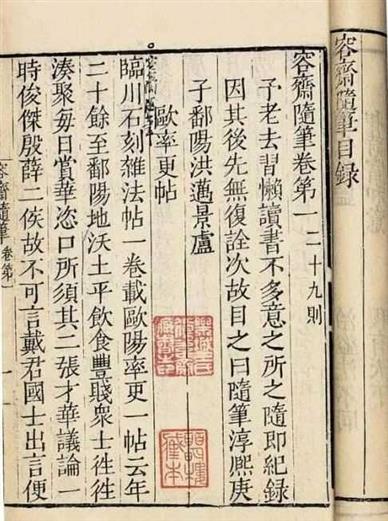 容齋隨筆目録
容齋隨筆卷第一 二十九則
予老去習懶讀書不多意之所之隨即紀録
因其後先無復詮次故目之曰隨筆淳熙庚
子鄱陽洪邁景盧
歐率更帖
臨川石刻雜法帖一卷載歐陽率更一帖云年
二十餘至鄱陽地沃土平飲食豐賤衆士徃徃
湊聚每日賞華恣口所須其二張才華議論一
時俊傑殷薛二侯故不可言戴君國士出言便
容齋隨筆 卷第一 一